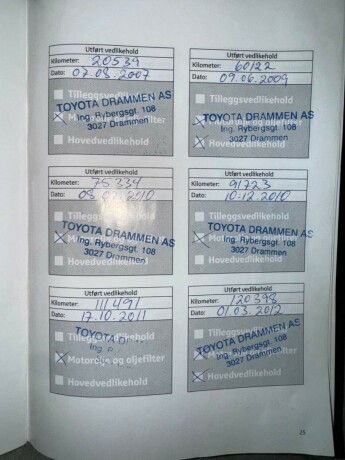 Utført vedlikehold
Kilometer: 20539
Dato: 07.08.2007
Tilleggsvedlikehold
TOYOTA DRAMMEN AS
Ing. Rybergsgt. 108
3027 Drammen
Hovedvedlikehold
Utført vedlikehold
Kilometer: 60122
Dato: 09.06.2009
Tilleggsvedlikehold
TOYOTA DRAMMEN AS
Motorolje og oljefilter
Ing. Rybergsgt. 108
3027 Drammen
Hovedvedlikehold
Utført vedlikehold
Kilometer: 75334
Dato: 2010
Tilleggsvedlikehold
TOYOTA DRAMMEN AS
Ing. Rybergsgt. 108
3027 Drammen
Hovedvedlikehold
Utført vedlikehold
Kilometer: 91723
Dato: 10.12.2010
Tilleggsvedlikehold
TOYOTA DRAMMEN AS
Motorolje og oljefilter
Ing. Rybergsgt. 108
3027 Drammen
Hovedvedlikehold
Utført vedlikehold
Kilometer: 111491
Dato: 17.10.2011
Tilleggsvedlikehold
TOYOTA
Ing.
Motorolje og oljefilter
Hovedvedlikehold
Utført vedlikehold
Kilometer: 120398
Dato: 01.03.2012
Tilleggsvedlikehold
TOYOTA DRAMMEN AS
Ing. Rybergsgt. 108
3027 Drammen
Hovedvedlikehold
25